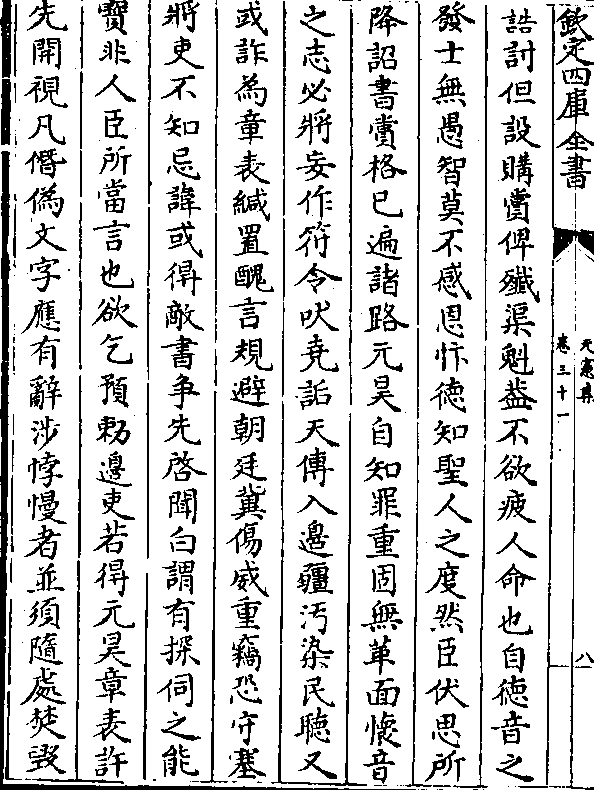 欽定四庫全書
元憲集
卷三十一
八
誥討但設購賞俾殲渠魁蓋不欲疲人命也自德音之
發士無愚智莫不感恩忭德知聖人之度然臣伏思所
降詔書賞格已遍諸路元昊自知罪重固無革面懷音
之志必將妄作符令吠堯詬天傳入邊疆汚染民聽又
或詐為章表緘置醜言規避朝廷冀傷威重竊恐守塞
將吏不知忌諱或得敵書争先啓聞白謂有探伺之能
寶非人臣所當言也欲乞預勅邊吏若得元昊章表許
先開視凡僭偽文字應有辭涉悖慢者並須隨處焚毀